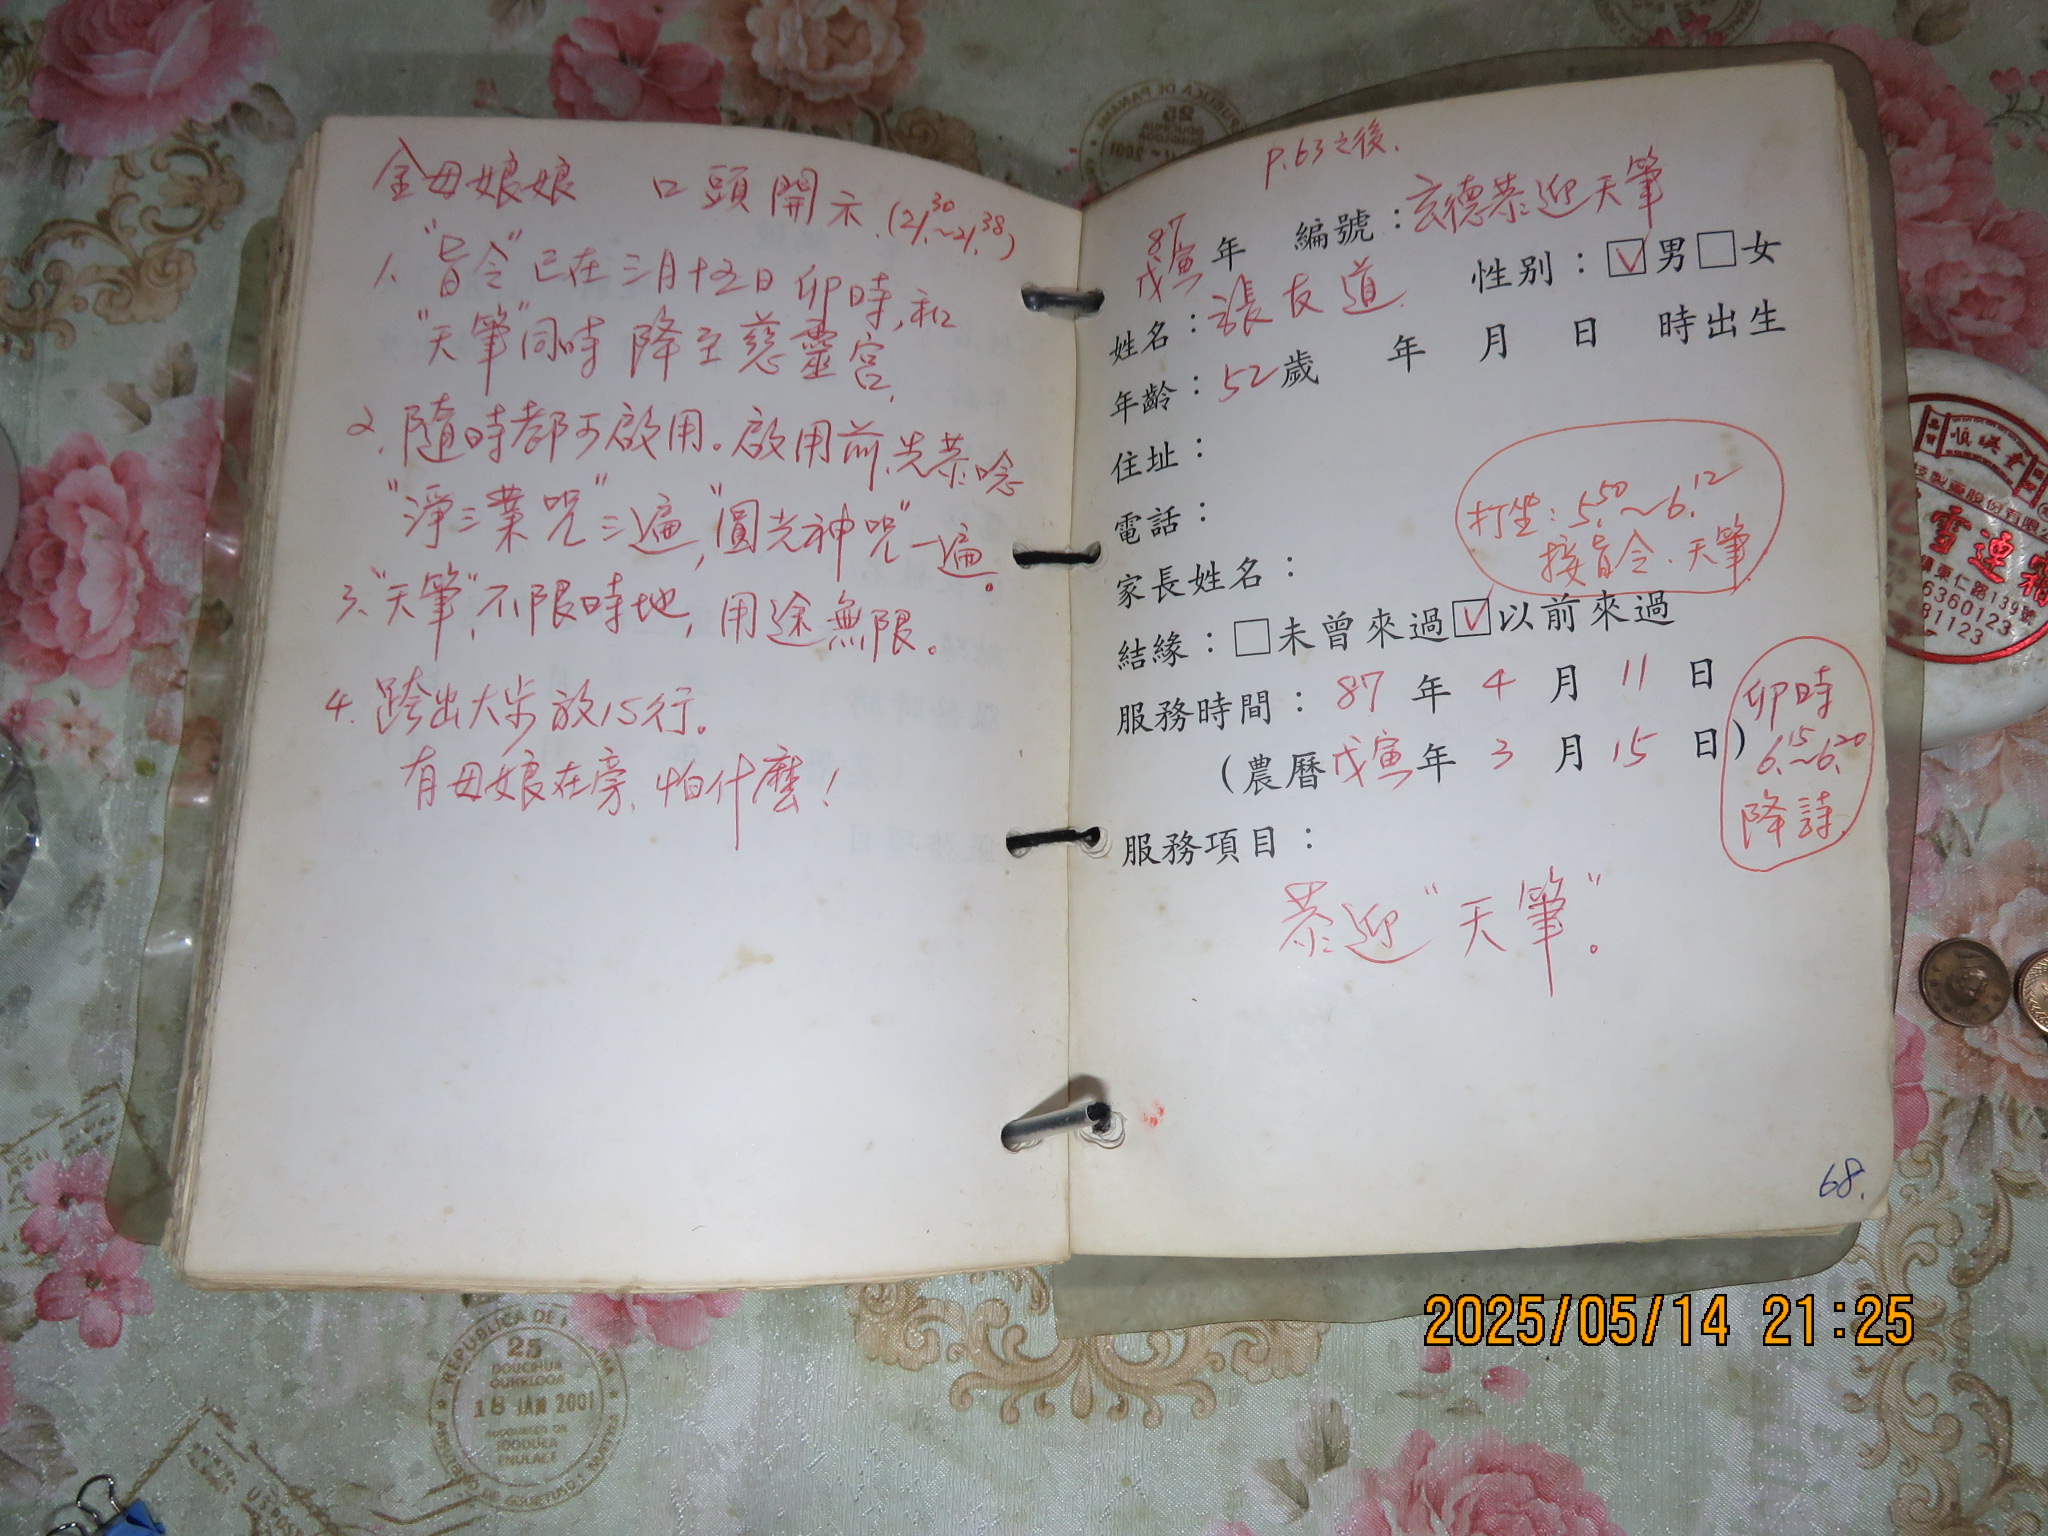 金母娘娘 口頭開示.(21.30~21.38)
1、"旨令"已在三月十五日卯時,和
"天筆"同時 降至慈靈宮.
2、隨時都可啟用。啟用前,先恭唸
"淨三業咒"三遍,"圓光神咒"一遍。
3、"天筆",不限時地,用途無限。
4. 跨出大步 放15行。
有母娘在旁,怕什麼!
P.63之後.
87
戊寅年 編號:玄德恭迎天筆
姓名:張友道. 性別:☑男□女
年齡:52歲 年 月 日 時出生
住址:
電話:
打坐:5.50~6.12
接旨令.天筆.
家長姓名:
結緣:□未曾來過☑以前來過
服務時間:87年4月11日
(農曆戊寅年3月15日)
卯時
6.15~6.20
降詩.
服務項目:
恭迎"天筆"。
68.
2025/05/14 21:25
REPUBLICA DE PANAMA
25
2001
25
18 JAN 2001
雪連
東仁路139號
6360123
681123